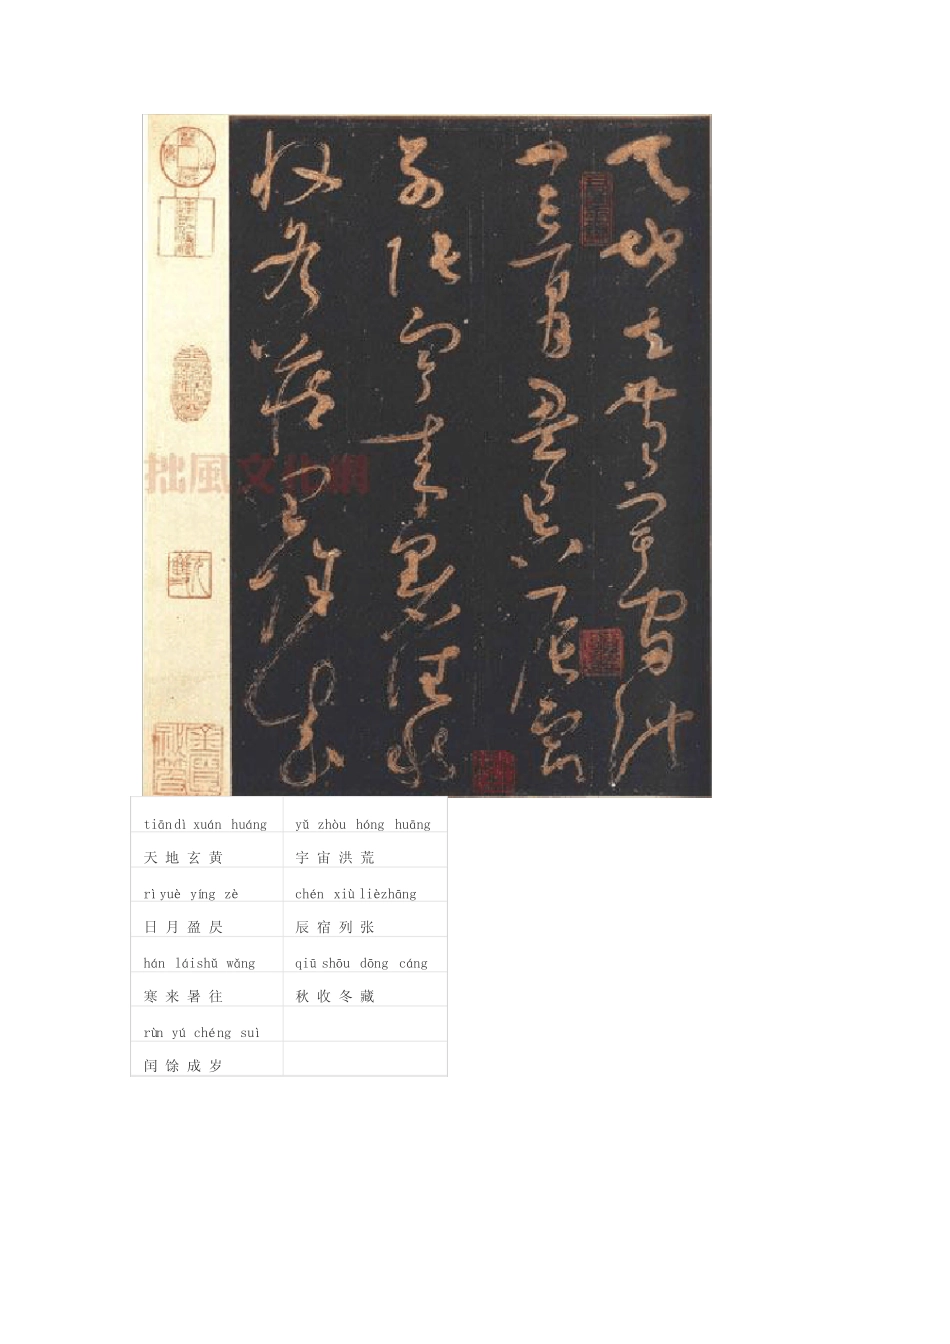 天地玄黄宇宙洪
荒日月盈昃辰宿
列张寒来暑往秋
收冬藏闰馀成岁
拙風文化網
tiān dì xuán huáng yǔ zhòu hóng huāng
天 地 玄 黄 宇 宙 洪 荒
rì yuè yíng zè chén xiù liè zhāng
日 月 盈 昃 辰 宿 列 张
hán lái shǔ wǎng qiū shōu dōng cáng
寒 来 暑 往 秋 收 冬 藏
rùn yú chéng suì
闰 馀 成 岁